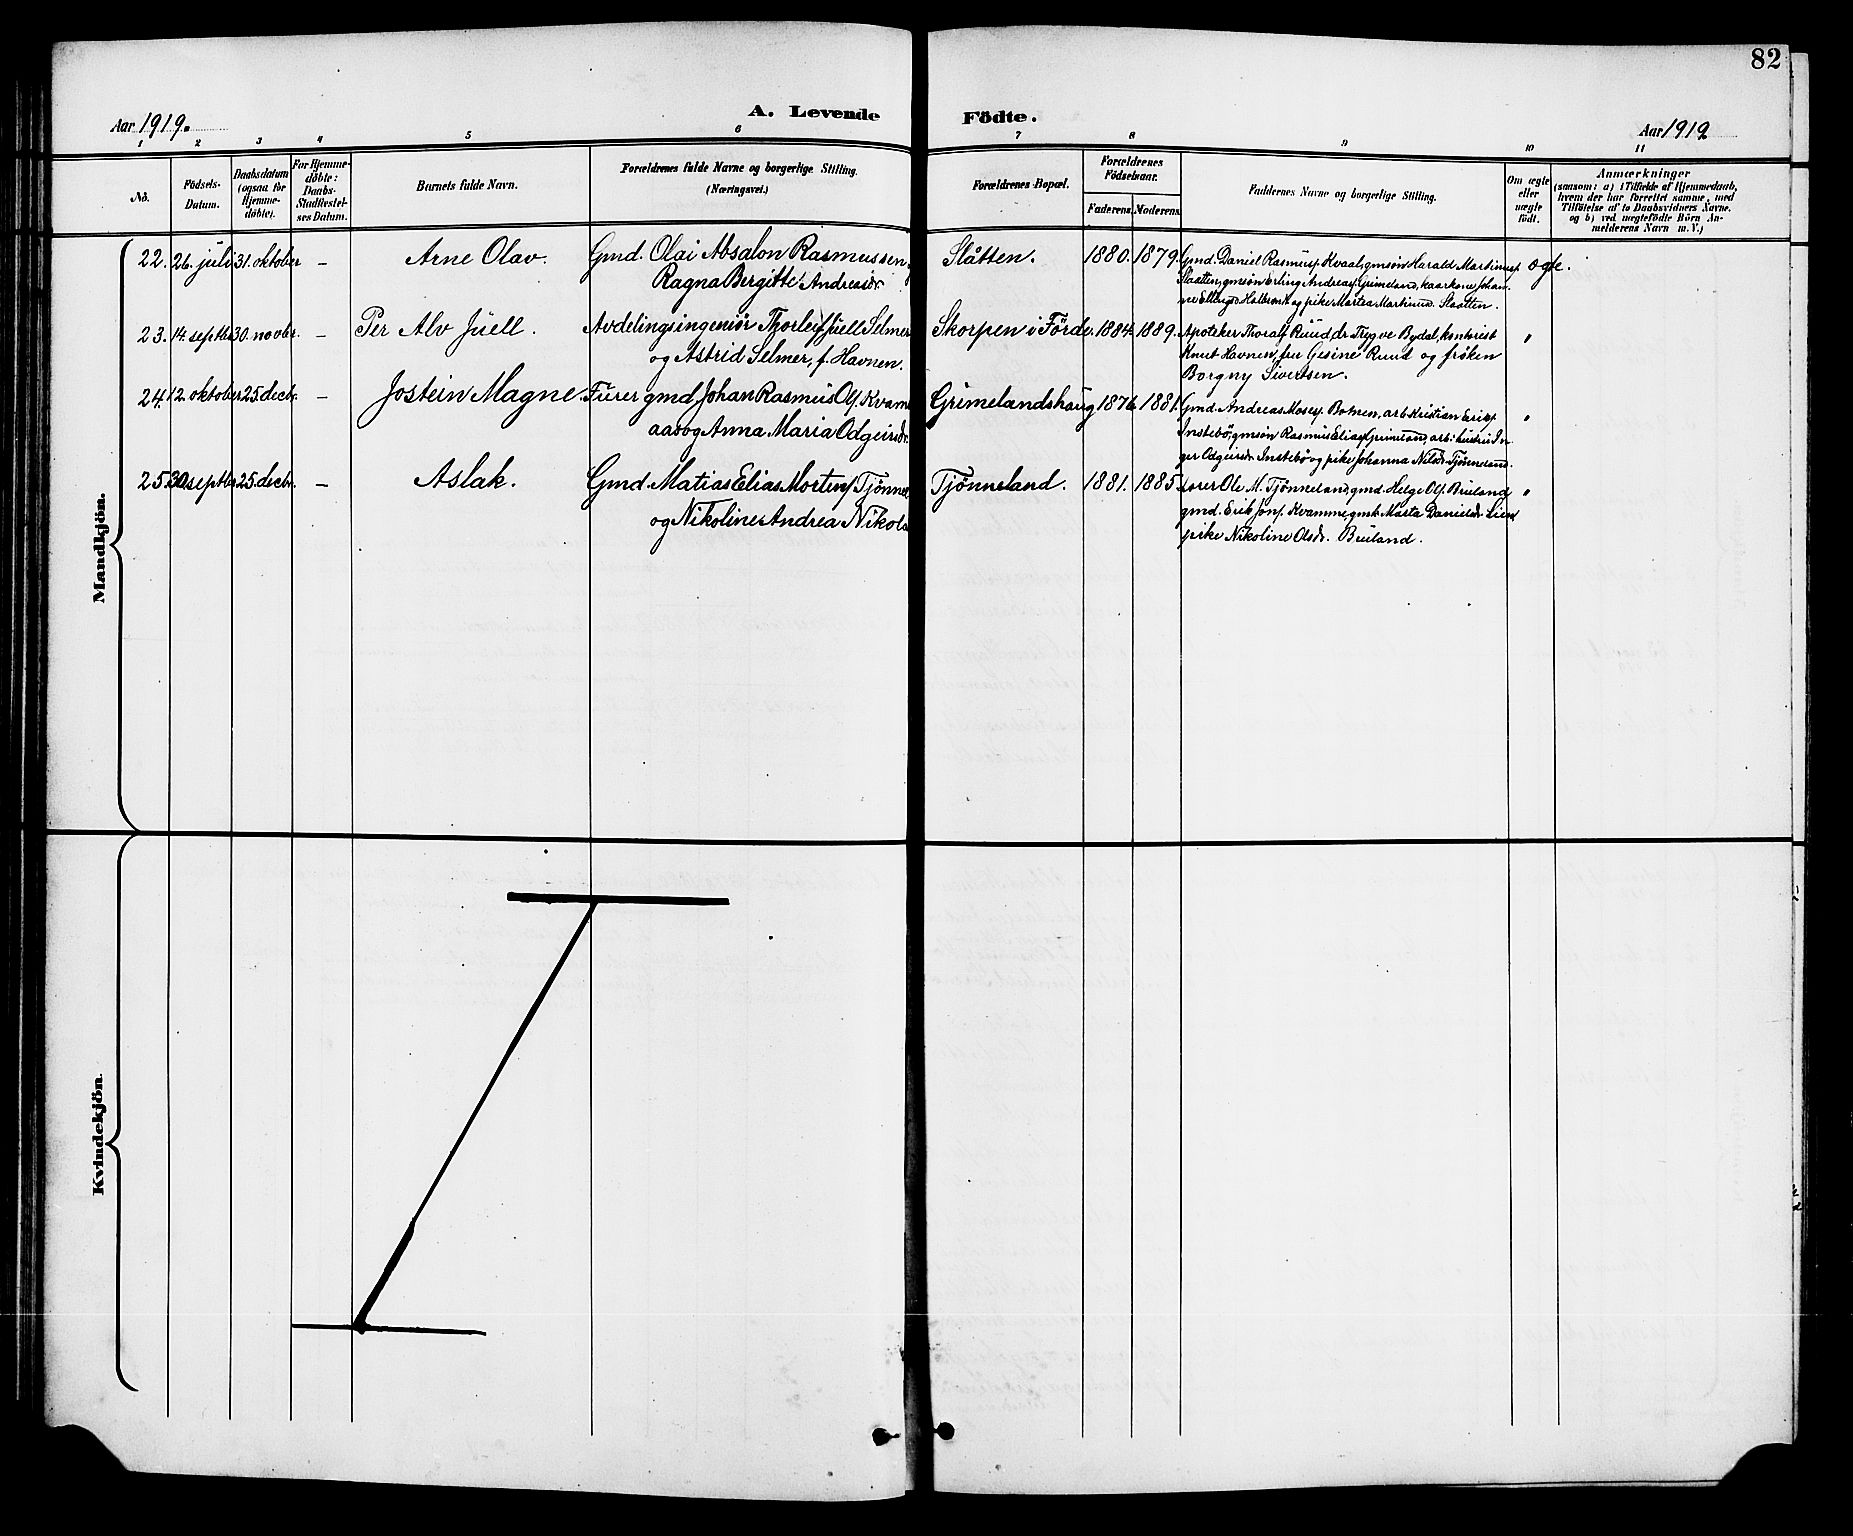 82
Aar 1919.
A. Levende
Födte.
Aar 1919
1 2 3 4 5 6 7 8 9 10 11
No.
Födsels-
Datum.
Daabsdatum
(ogsaa for
Hjemme-
döbte).
For Hjemme-
döbte:
Daabs-
Stadfæstel-
ses Datum.
Barnets fulde Navn.
Forældrenes fulde Navne og borgerlige Stilling.
(Næringsvei.)
Forældrenes Bopæl.
Forældrenes
Födselsaar.
Faderens.
Moderens.
Faddernes Navne og borgerlige Stilling.
Om ægte
eller
uægte
födt.
Anmærkninger
(saasom: a) i Tilfælde af Hjemmedaab,
hvem der har forrettet samme, med
Tilföielse af to Daabsvidners Navne,
og b) ved uægtefödte Börn An-
melderens Navn m. V.)
Mandkjön.
22. 26. juli 31. oktober - Arne Olav. Gmd. Olai Absalon Rasmussen
Ragna Bergitte Andreasdr.
Slåtten. 1880. 1879. Gmd. Daniel Rasmusf. Kvaal, gmsön Harald Martinusf.
Slaatten, gmsön Erling Andreasf. Grimeland, kaarkone Johan-
ne Ellingsd. Halbrend og pike Martea Martinusd. Slaatten.
ægte.
23. 14. septbr 30. novbr. - Per Alv Juell. Avdelingsingeniör Thorleif Juell Selmer
og Astrid Selmer, f. Havnen.
Skorpen i Förde. 1884. 1889. Apoteker Thoralf Ruud, dr Trygve Bydal, kontorist
Knut Havnen, fru Gesine Ruud og fröken
Borgny Sivertsen.
"
24. 12. oktober 25. decbr. - Jostein Magne. Furer gmd. Johan Rasmus Olf. Kvam
aas og Anna Maria Odgeirsdr.
Grimelandshaug 1876. 1881. Gmd. Andreas Mosesf. Botnen, arb. Kristian Eriksf.
Instebö, gmsön Rasmus Eliasf. Grimeland, arb.: hustru In-
ger Odgeirsdr. Instebö og pike Johanna Nilsdr. Tjönneland.
"
25. 30. septbr 25. decbr. - Aslak. Gmd. Matias Elias Mortenf. Tjönnel
og Nikoline Andrea Nikola
Tjönneland. 1881. 1885. Ole M. Tjönneland, gmd. Helge Olf. Bruland
gmd. Erik Jonf. Kvamme, gmk. Marta Danielsdr. Lien
pike Nikoline Olsdr. Bruland.
"
Kvindekjön.